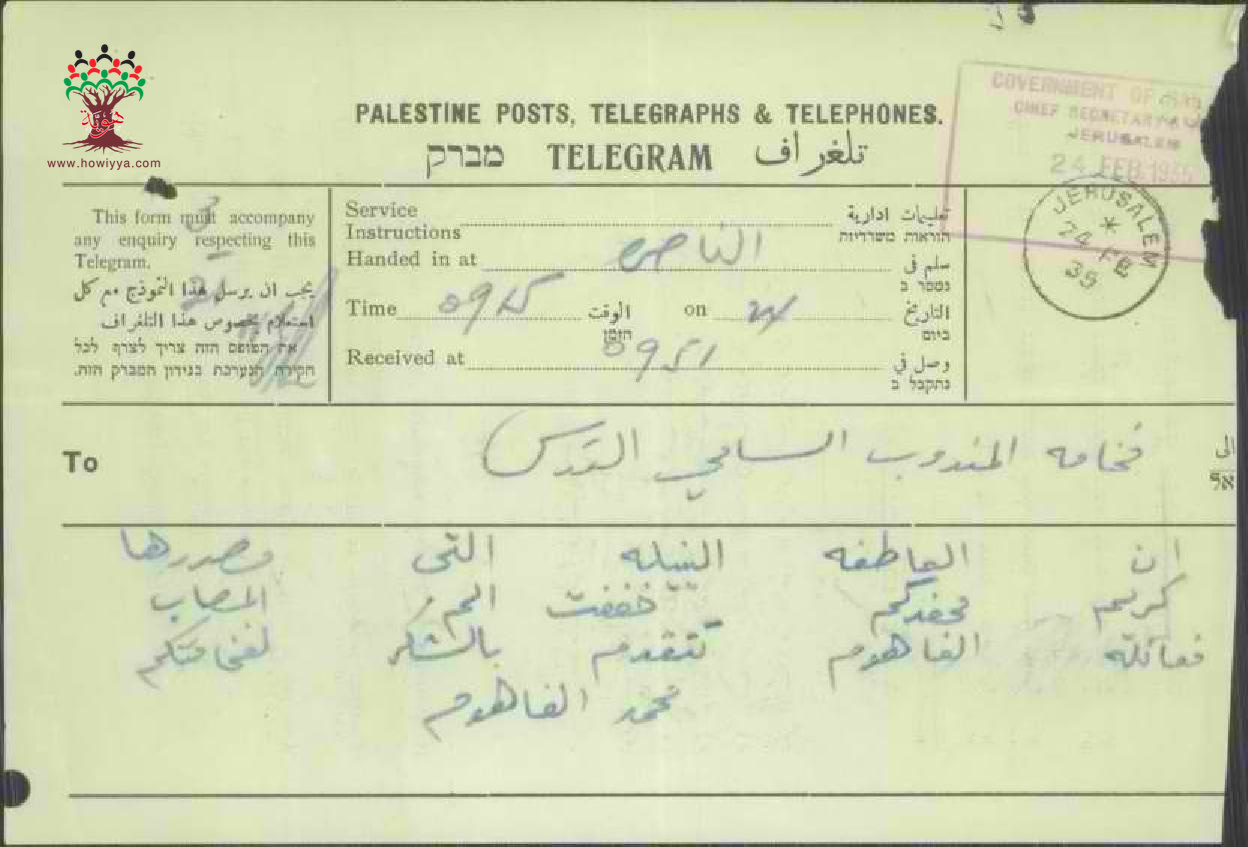 www.howiyya.com
PALESTINE POSTS, TELEGRAPHS & TELEPHONES.
מברק TELEGRAM تلغراف
GOVERNMENT OF
CHIEF SECRETARY
JERUSALEM
24 FEB 1935
JERUSALEM
24 FE
35
This form must accompany
any enquiry respecting this
Telegram.
يجب ان يرسل هذا النموذج مع كل
استعلام بخصوص هذا التلغراف
את הטופס הזה צריך לצרף לכל
חקירה הנערכת בנידון המברק הזה.
Service
Instructions
تعليمات ادارية
הוראות משרדיות
Handed in at الناصره سلم في
נמסר ב
Time 0925 الوقت
הזמן
on 24 التاريخ
ביום
Received at 0951 وصل في
נתקבל ב
To فخامه المندوب السامي القدس الى
אל
ان العاطفه النبيله التى مصدرها
كريم خففت المصاب
فعائلة الفاهوم تتقدم بالشكر لفخامتكم
محمد الفاهوم